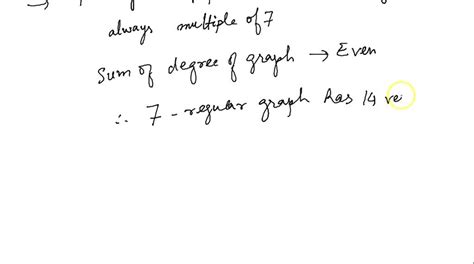 always multiple of 7
Sum of degree of graph → Even
∴ 7 - regular graph has 14 ve